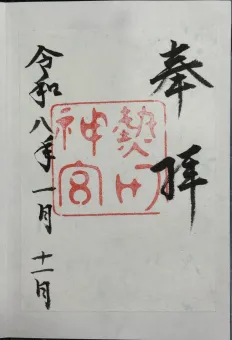 奉拝
熱田神宮
令和八年一月十一日